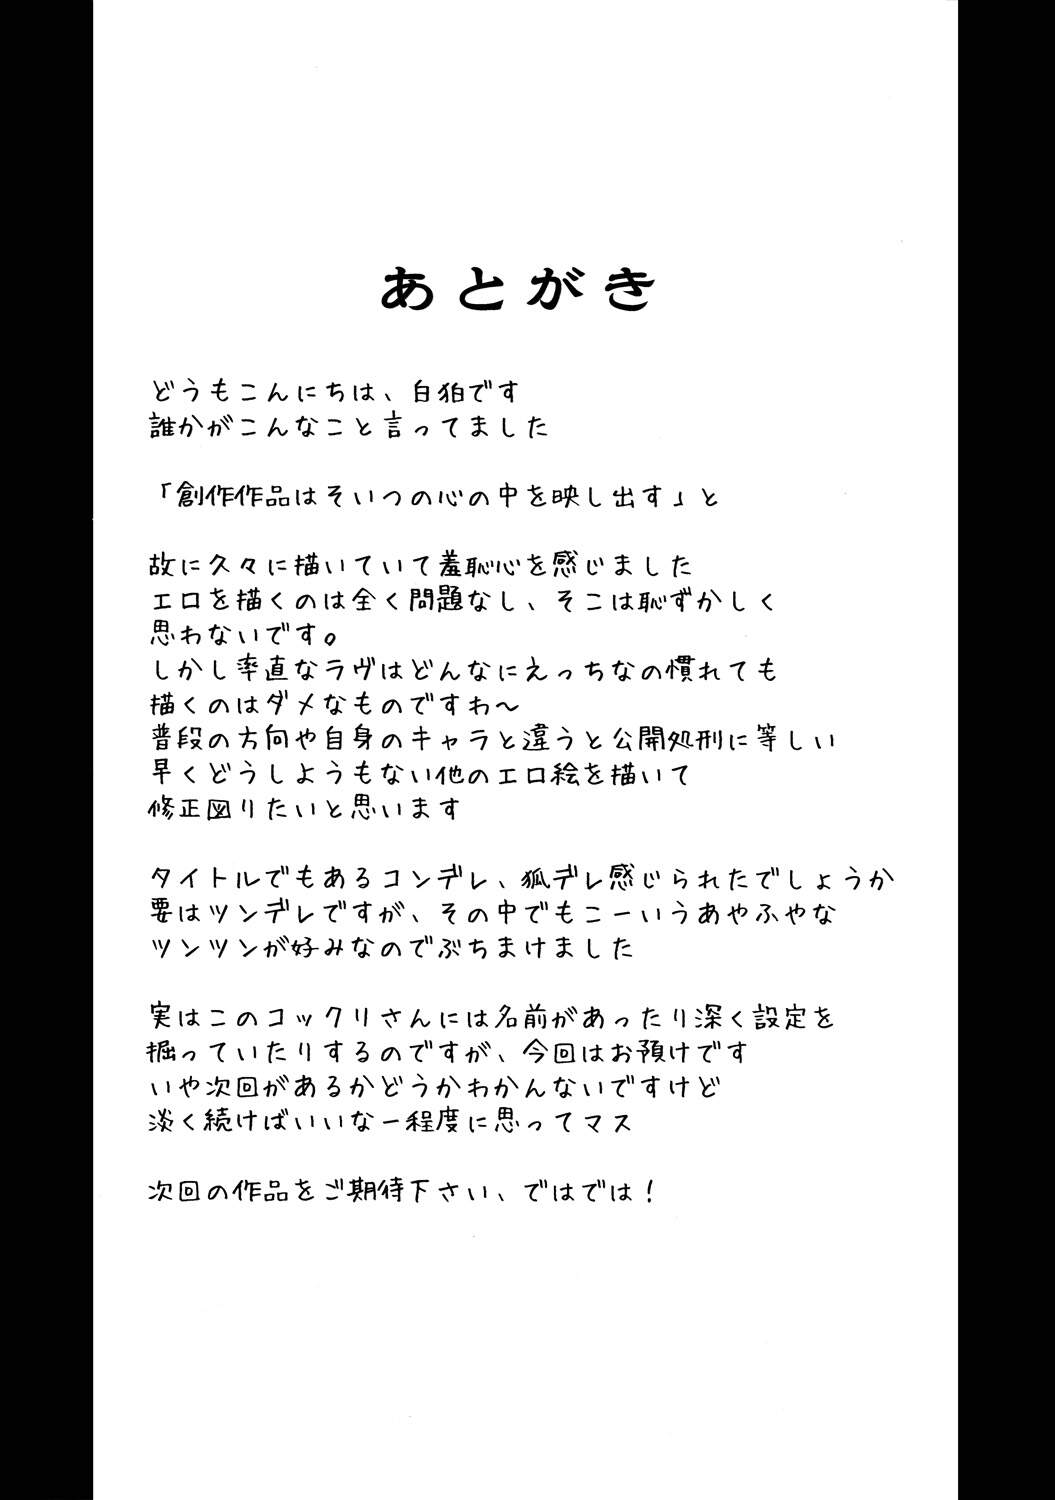 あとがき
どうもこんにちは、白狛です
誰かがこんなこと言ってました
「創作作品はそいつの心の中を映し出す」と
故に久々に描いていて羞恥心を感じました
エロを描くのは全く問題なし、そこは恥ずかしく
思わないです。
しかし率直なラヴはどんなにえっちなの慣れても
描くのはダメなものですわ～
普段の方向や自身のキャラと違うと公開処刑に等しい
早くどうしようもない他のエロ絵を描いて
修正図りたいと思います
タイトルでもあるコンデレ、狐デレ感じられたでしょうか
要はツンデレですが、その中でもこーいうあやふやな
ツンツンが好みなのでぶちまけました
実はこのコックリさんには名前があったり深く設定を
掘っていたりするのですが、今回はお預けです
いや次回があるかどうかわかんないですけど
淡く続けばいいなー程度に思ってマス
次回の作品をご期待下さい、ではでは！